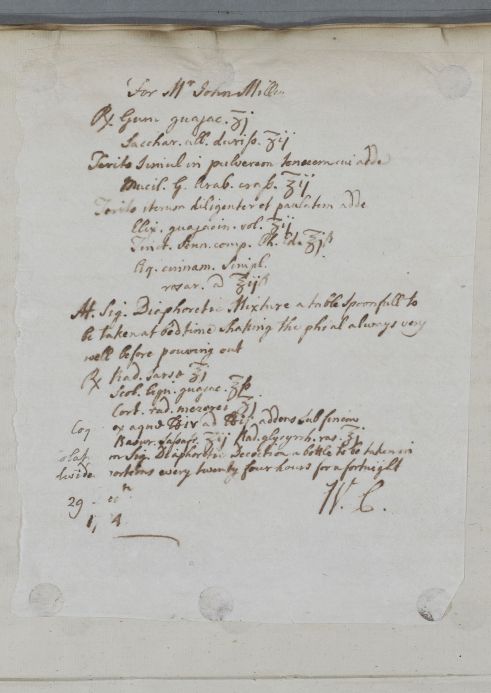 For Mr John Mill
℞ Gum guajac. ʒj
Sacchar. alb. duriss. ʒij
Terito simul in pulverem tenerem cui adde
Mucil. G. Arab. crass. ʒij
Terito iterum diligenter et paulatim adde
Elix. guajacin. vol. ʒij
Tinct. Senn. comp. Ph. Ed.
Aq. cinnam. simpl.
rosar. a
At. Sig. Diaphoretic Mixture a table spoonfull to
be taken at bedtime shaking the phial always very
well before pouring out
℞ Rad. sarsæ ʒj
Scob. lign. guajac. ʒſs
Cort. rad. mezerei
Coq ex aquæ ad addens sub finem
Rasur. sassafr. ʒij Rad. glycyrrh. ras.
colat Sig. Diaphoretic Decoction a bottle to be taken in
divide portions every twenty four hours for a fortnight
29 W. C.